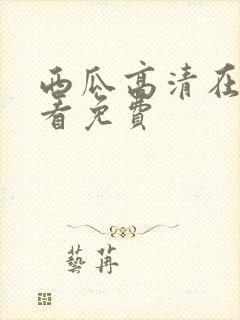 西瓜高清在
看免費
藝苒